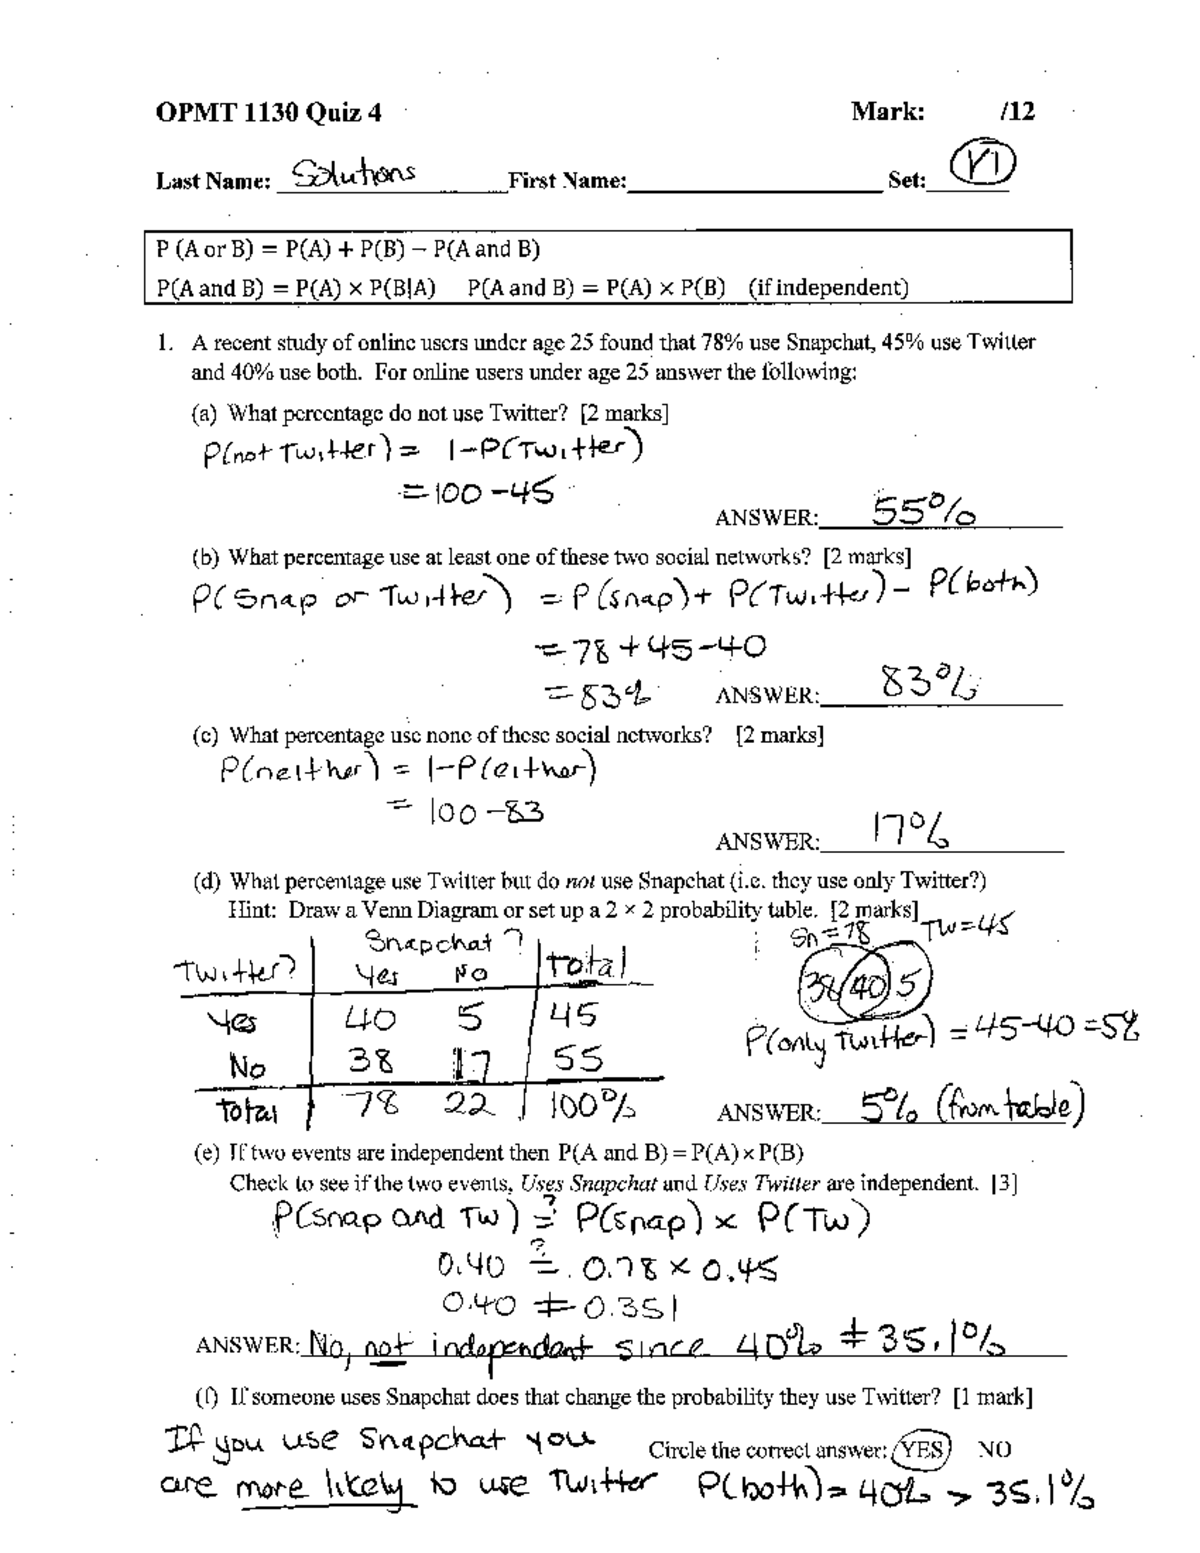 OPMT 1130 Quiz 4 Mark: /12
Last Name: Solutions First Name: Set: Y1
P (A or B) = P(A) + P(B) – P(A and B)
P(A and B) = P(A) × P(B|A) P(A and B) = P(A) × P(B) (if independent)
1. A recent study of online users under age 25 found that 78% use Snapchat, 45% use Twitter
and 40% use both. For online users under age 25 answer the following:
(a) What percentage do not use Twitter? [2 marks]
P(not Twitter) = 1-P(Twitter)
= 100-45
ANSWER: 55%
(b) What percentage use at least one of these two social networks? [2 marks]
P(Snap or Twitter) = P(snap)+ P(Twitter) - P(both)
= 78+45-40
= 83% ANSWER: 83%
(c) What percentage use none of these social networks? [2 marks]
P(neither) = 1-P(either)
= 100-83
ANSWER: 17%
(d) What percentage use Twitter but do not use Snapchat (i.e. they use only Twitter?)
Hint: Draw a Venn Diagram or set up a 2 × 2 probability table. [2 marks]
Sn=78 TW=45
Snapchat?
Twitter? Yes No Total
38 40 5
Yes 40 5 45
P(only Twitter) = 45-40 = 5%
No 38 17 55
Total 78 22 100%
ANSWER: 5% (from table)
(e) If two events are independent then P(A and B) = P(A) × P(B)
Check to see if the two events, Uses Snapchat and Uses Twitter are independent. [3]
P(snap and TW) =? P(snap) × P(TW)
0.40 =? 0.78 × 0.45
0.40 ≠ 0.351
ANSWER: No, not independent since 40% ≠ 35.1%
(f) If someone uses Snapchat does that change the probability they use Twitter? [1 mark]
If you use Snapchat you
Circle the correct answer: YES NO
are more likely to use Twitter P(both) = 40% > 35.1%